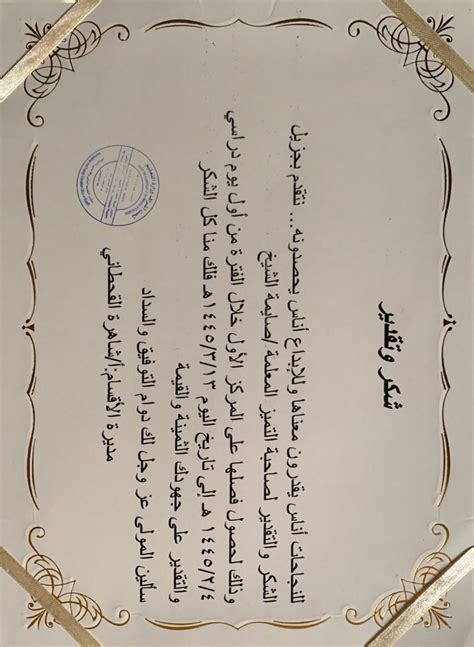 شكر وتقدير
للنجاحات أناس يقدرون معناها وللإبداع أناس يحصدونه... نتقدم بجزيل
الشكر والتقدير لصاحبة التميز المعلمة /صايمة الشيخ
وذلك لحصول فصلها على المركز الأول خلال الفترة من أول يوم دراسي
١٤٤٥/٢/٤ هـ إلى تاريخ اليوم ١٤٤٥/٣/١٣هـ فلك منا كل الشكر
والتقدير على جهودك الثمينة والقيمة
سألين المولى عز وجل لك دوام التوفيق والسداد
مديرة الأقسام:أ/شاهرة القحطاني